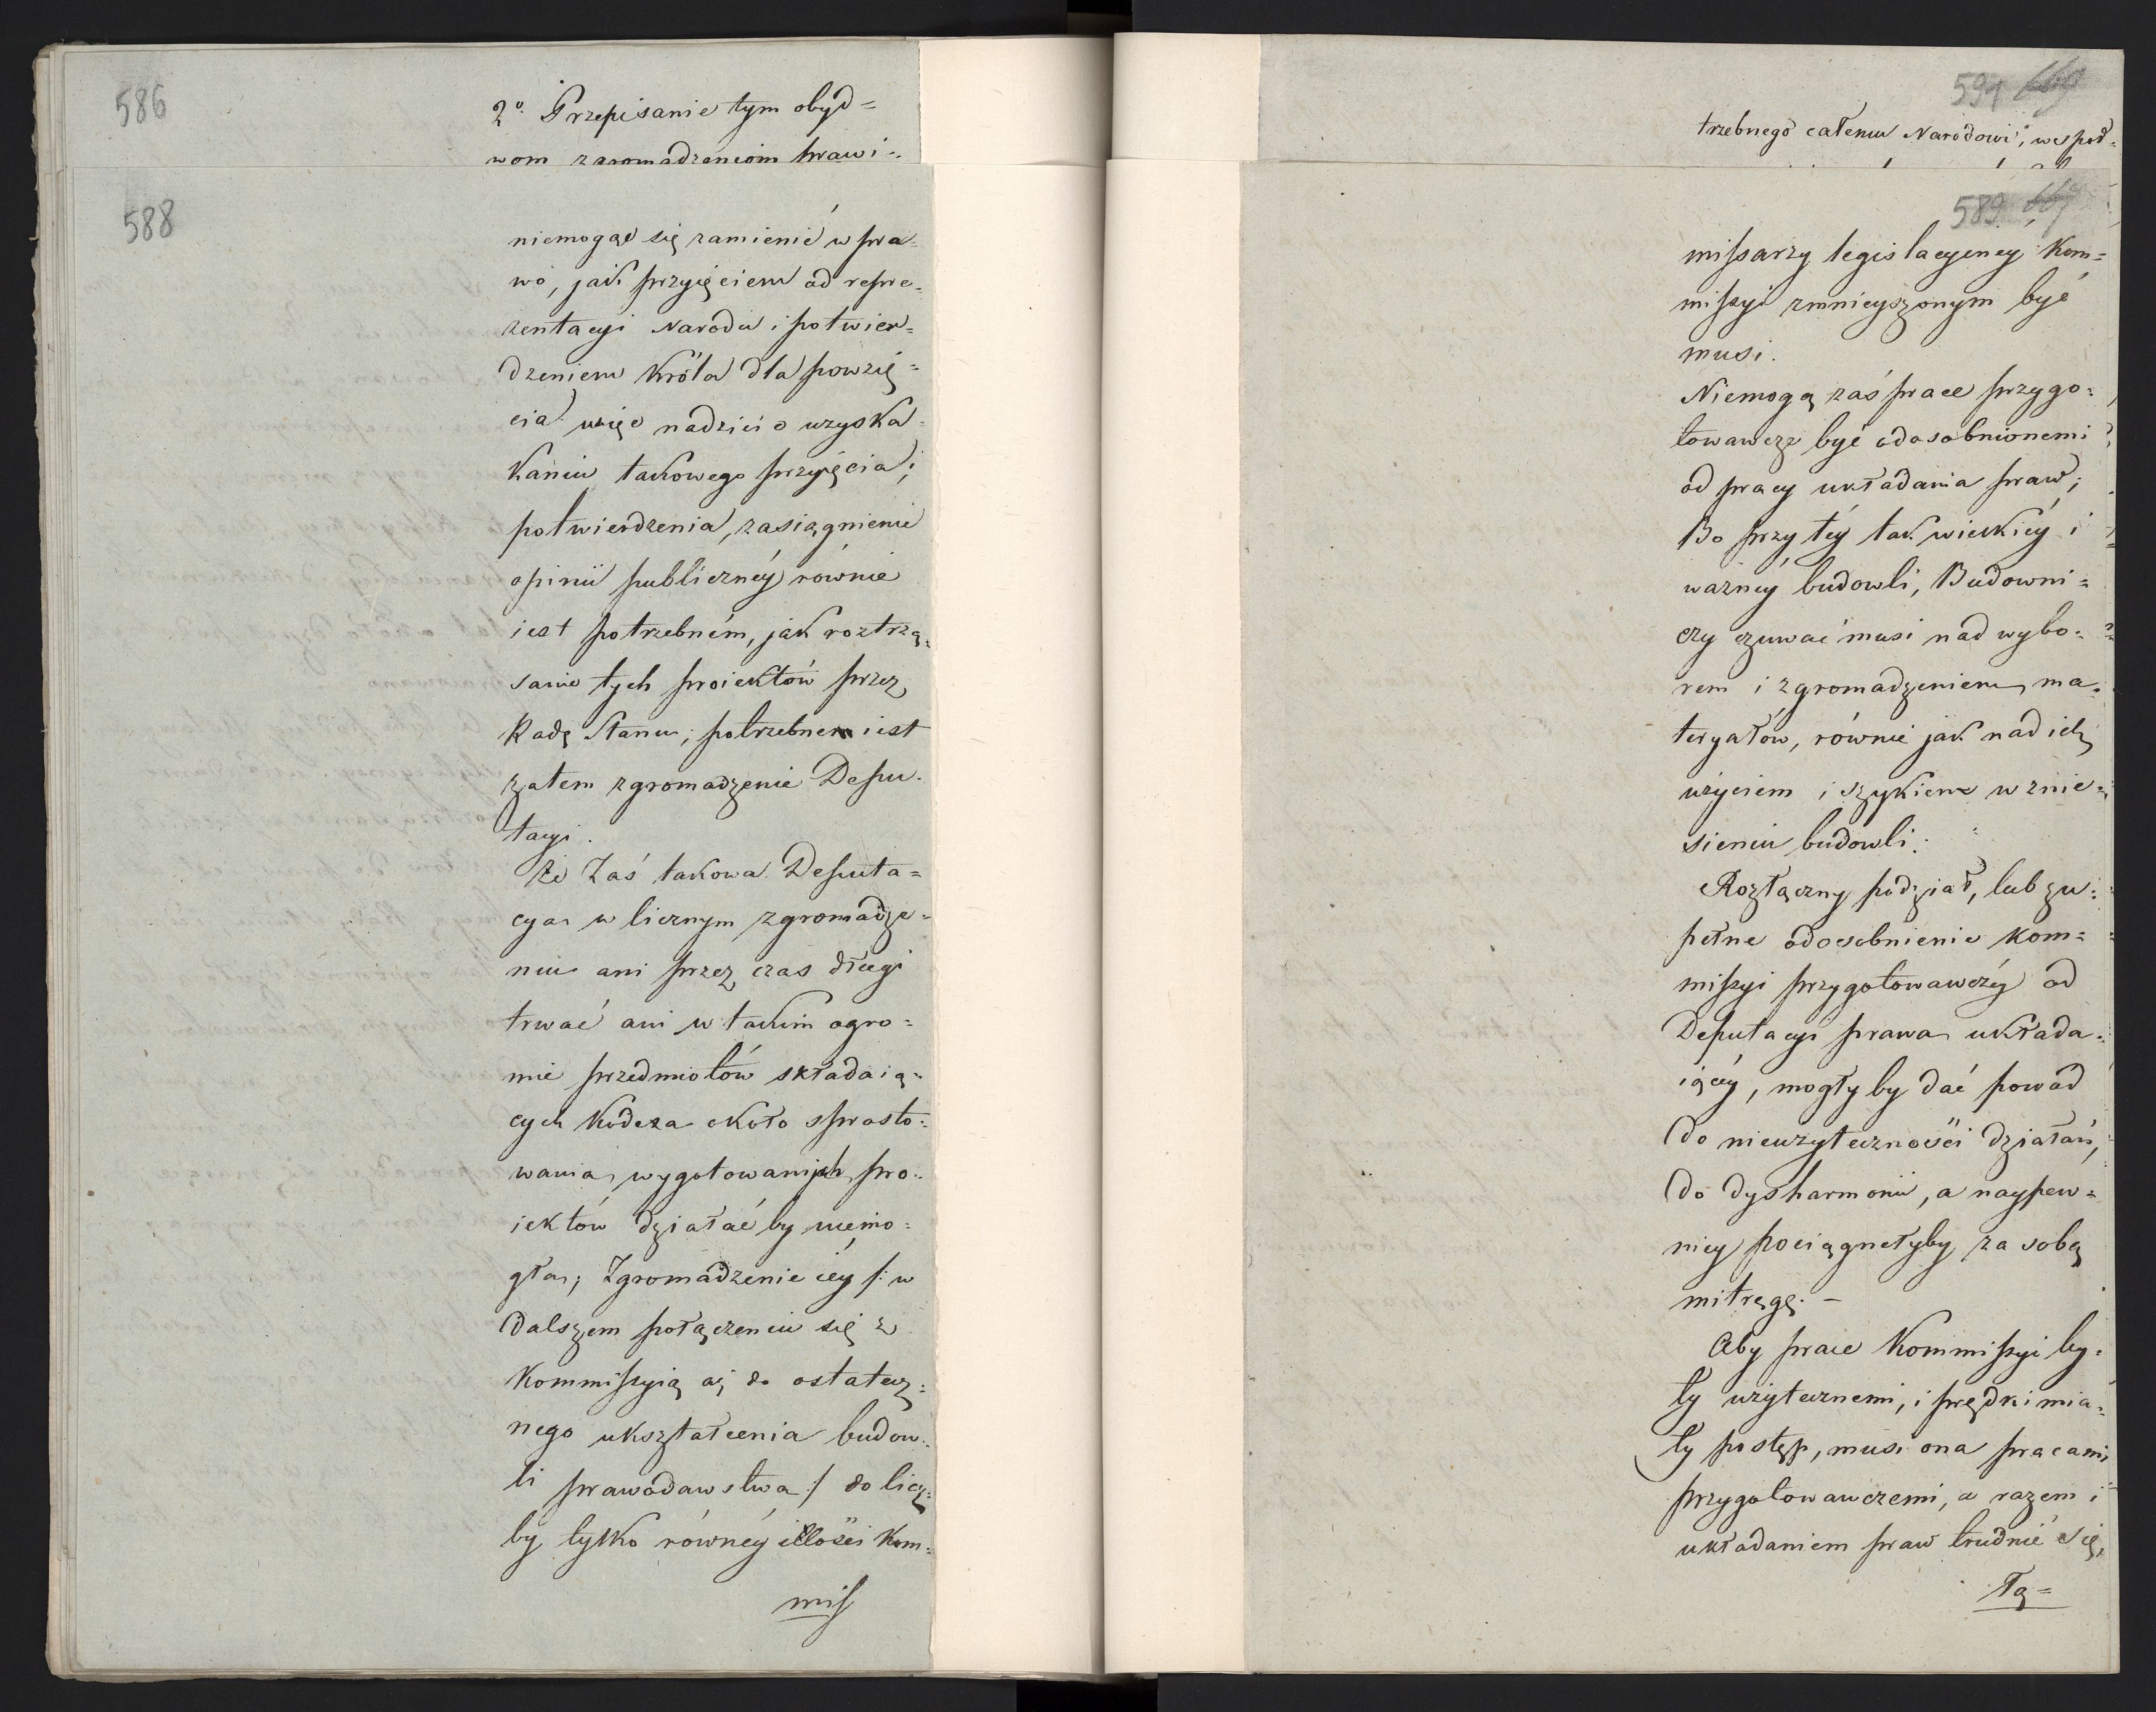 586
2º Przepisanie tym obyd=
wom zgromadzeniom prawi-
588
niemogąc się zamienić w pra=
wo, jak przyięciem od repre=
zentacyi Narodu i potwier=
dzeniem Króla dla powzię=
cia więc nadziei o uzyska=
kaniu takowego przyięcia i
potwierdzenia, zasiągnienie
opinii publicznéy równie
iest potrzebném, jak roztrzą=
sanie tych proiektów przez
Radę Stanu; potrzebnem iest
zatem zgromadzenie Depu=
tacyi.
Że Zaś takowa Deputa=
cya w licznym zgromadze=
niu ani przez czas długi
trwać ani w takim ogro=
mie przedmiotów składaią=
cych Kodexa około sprosto=
wania wygotowanych pro=
iektów działać by niemo=
gła; Zgromadzenie iéy /: w
dalszem połączeniu się z
Kommissyią aż do ostatecz=
nego ukształcenia budow=
li prawodawstwa :/ do licz=
by tylko równéy illości Kom=
miss
594 669
trzebnego całemu Narodowi; wespoł=
589 667
missarzy legislacyinéy Kom=
missyi zmnieyszonym być
musi.
Niemogą zaś prace przygo=
towawcze być odosobnionemi
od pracy układania praw;
Bo przy téy tak wielkiéy i
ważnéy budowli, Budowni=
czy czuwać musi nad wybo=
rem i zgromadzeniem ma=
teryałów, równie jak nad ich
użyciem i szykiem w znie=
sieniu budowli.
Rozłączny podział, lub zu=
pełne odosobnienie Kom=
missyi przygotowawczéy od
Deputacyi prawa układa=
iącéy, mogły by dać powód
do nieużyteczności działań,
do dysharmonii, a naypew=
niéy pociągnełyby za sobą
mitręgę. –
Aby prace Kommissyi by=
ły użytecznemi, i prędki mia=
ły postęp, musi ona pracami
przygotowawczemi, a razem i
układaniem praw trudnić się,
Tą=